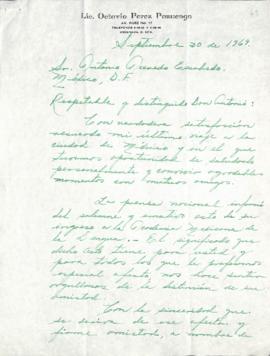 Lic. Octavio Perez Pomuengo
Septiembre 20 de 1969.
Sr. Antonio Acevedo Escobedo.
México, D. F.
Respetable y distinguido Don Antonio:
Con verdadera satisfacción
recuerdo mi último viaje a la
ciudad de México y en el que
tuvimos oportunidad de saludarlo
personalmente y convivir agradables
momentos con mutuos amigos.
La prensa nacional informó
del solemne y emotivo acto de su
ingreso a la Academia Mexicana de
la Lengua.- El significado que
dicho acto tiene para usted y
para todos los que le profesamos
especial afecto, nos hace sentir
orgullosos de la distinción de su
amistad.
Con la sinceridad que
se deriva de ese afecto y
firme amistad, a nombre de